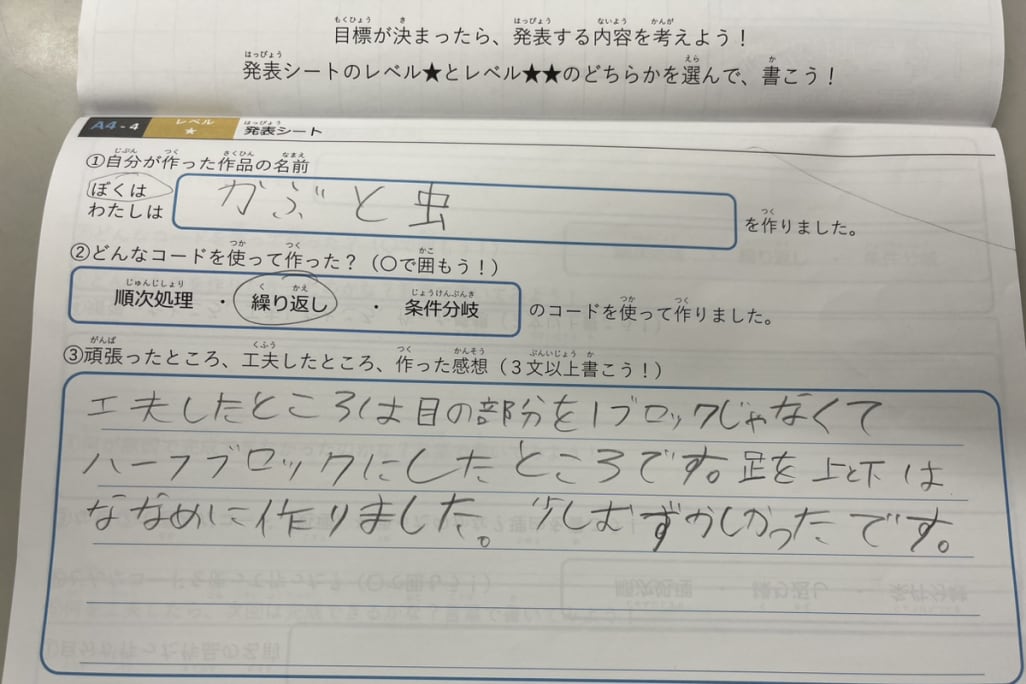 目標が決まったら、発表する内容を考えよう！
発表シートのレベル★とレベル★★のどちらかを選んで、書こう！
A4-4 レベル★ 発表シート
①自分が作った作品の名前
ぼくは
わたしは
かぶと虫
を作りました。
②どんなコードを使って作った？（○で囲もう！）
順次処理 ・ 繰り返し ・ 条件分岐 のコードを使って作りました。
③頑張ったところ、工夫したところ、作った感想（３文以上書こう！）
工夫したところは目の部分を1ブロックじゃなくて
ハーフブロックにしたところです。足を上と下は
ななめに作りました。少しむずかしかったです。